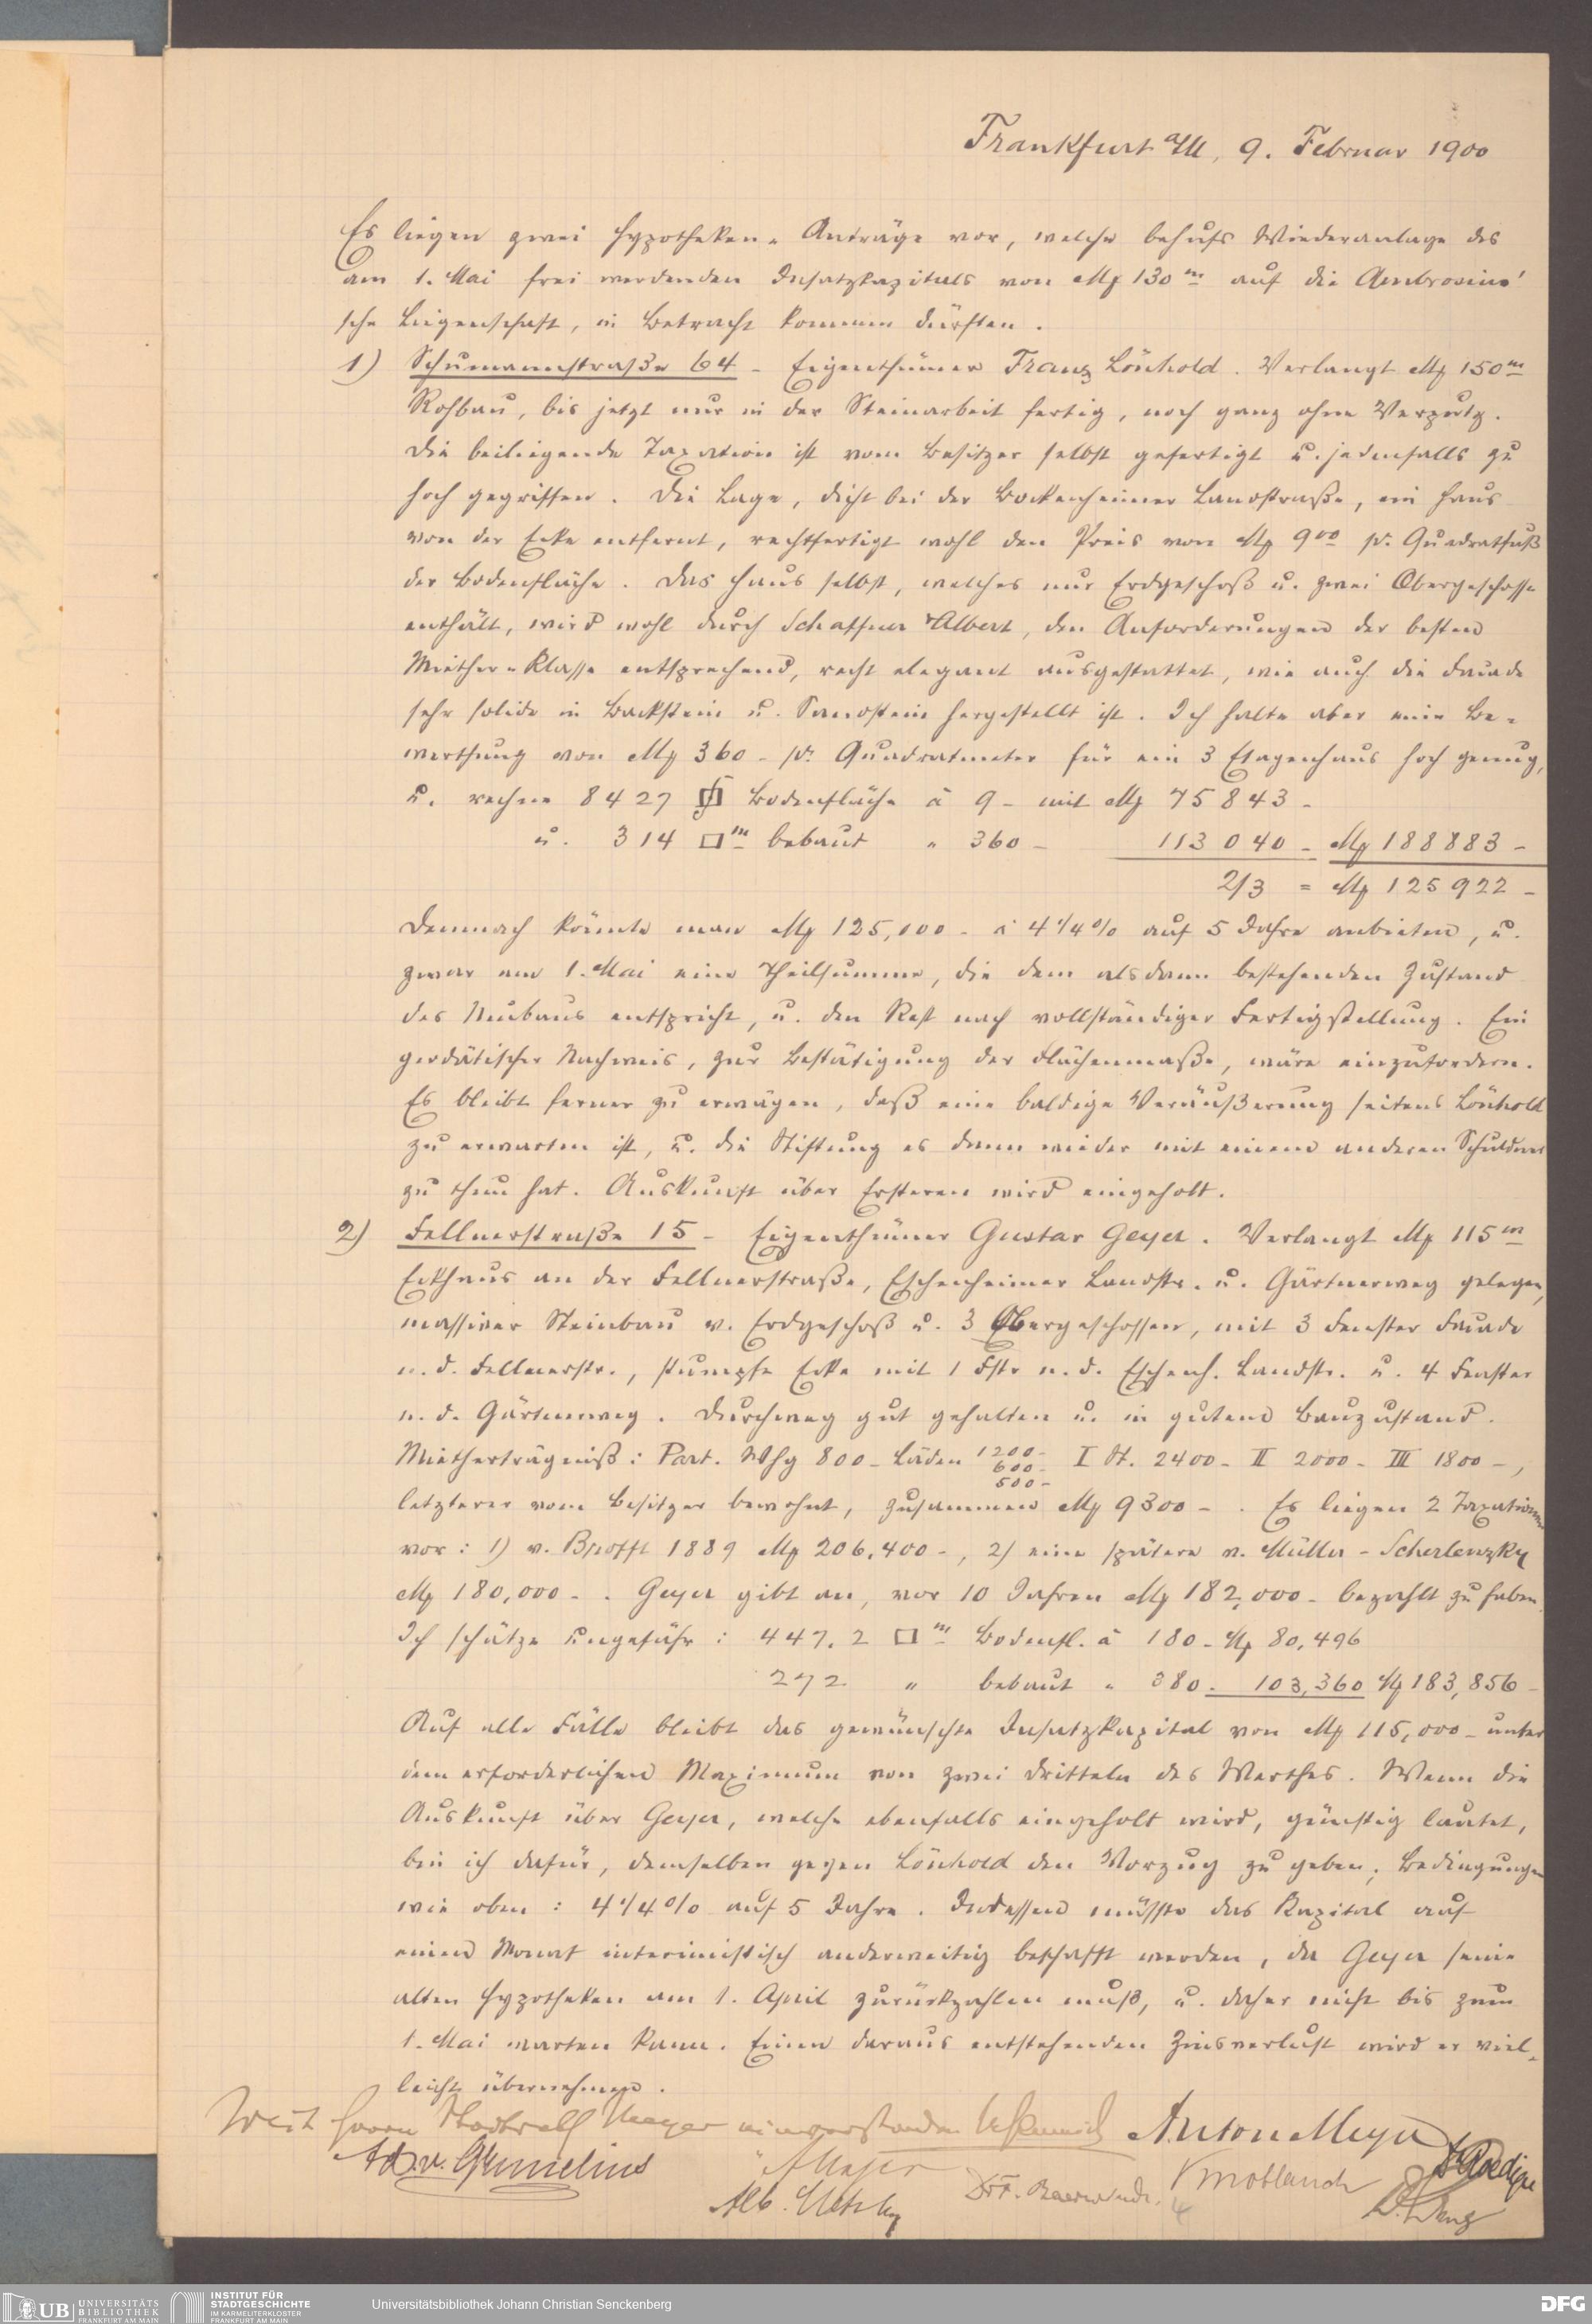 Frankfurt a/M, 9. Februar 1900
Es liegen zwei Hypotheken-Anträge vor, welche behufs Wiederanlage des
am 1. Mai frei werdenden Insatzkapitals von M 130 m auf die Ambrosius'
sche Liegenschaft, in Betracht kommen dürften.
1) Schumannstraße 64 - Eigenthümer Franz Lönhold. Verlangt M 150 m
Rohbau, bis jetzt nur in der Steinarbeit fertig, noch ganz ohne Verputz.
Die beiliegende Taxation ist vom Besitzer selbst gefertigt u. jedenfalls zu
hoch gegriffen. Die Lage, dicht bei der Bockenheimer Landstraße, ein Haus
von der Ecke entfernt, rechtfertigt wohl den Preis von M 9 00 pr. Quadratfuß
der Bodenfläche. Das Haus selbst, welches nur Erdgeschoß u. zwei Obergeschosse
enthält, wird wohl durch Schaffner & Albert, den Anforderungen der besten
Miether-Klasse entsprechend, recht elegant ausgestattet, wie auch die Facade
sehr solide in Backstein u. Sandstein hergestellt ist. Ich halte aber eine Be-
werthung von M 360 - pr. Quadratmeter für ein 3 Etagenhaus hoch genug,
u. rechne 8427 □ Bodenfläche à 9 - mit M 75843 -
u. 314 □ m bebaut " 360 - 113040 - M 188883 -
2/3 = M 125922 -
Demnach könnte man M 125,000 - à 4 1/4 % auf 5 Jahre anbieten, u.
zwar am 1. Mai eine Theilsumme, die dem alsdann bestehenden Zustand
des Neubaus entspricht, u. den Rest nach vollständiger Fertigstellung. Ein
geodätischer Nachweis, zur Bestätigung der Flächenmaße, wäre einzufordern.
Es bleibt ferner zu erwägen, daß eine baldige Veräußerung seitens Lönhold
zu erwarten ist, u. die Stiftung es dann wieder mit einem anderen Schuldner
zu thun hat. Auskunft über Ersteren wird eingeholt.
2) Fellnerstraße 15 - Eigenthümer Gustav Geyer. Verlangt M 115 m
Eckhaus an der Fellnerstraße, Eschenheimer Landstr. u. Gärtnerweg gelegen,
massiver Steinbau v. Erdgeschoß u. 3 Obergeschossen, mit 3 Fenster Facade
n. d. Fellnerstr., stumpfe Ecke mit 1 Fstr n. d. Eschenh. Landstr. u. 4 Fenster
n. d. Gärtnerweg. Durchweg gut gehalten u. in gutem Bauzustand.
Mietherträgniß: Part. Whg 800 - Läden 1200 - 600 - 500 - I St. 2400 - II 2000 - III 1800 -,
letzterer vom Besitzer bewohnt, zusammen M 9300 -. Es liegen 2 Taxationen
vor: 1) v. Brofft 1889 M 206,400 -, 2) eine spätere v. Müller-Scherlenzky
M 180,000 -. Geyer gibt an, vor 10 Jahren M 182,000 - bezahlt zu haben.
Ich schätze ungefähr: 447.2 □ m Bodenfl. à 180 - M 80,496
272 " bebaut " 380 - 103,360 M 183,856 -
Auf alle Fälle bleibt das gewünschte Insatzkapital von M 115,000 - unter
dem erforderlichen Maximum von zwei Dritteln des Werthes. Wenn die
Auskunft über Geyer, welche ebenfalls eingeholt wird, günstig lautet,
bin ich dafür, demselben gegen Lönhold den Vorzug zu geben; Bedingungen
wie oben: 4 1/4 % auf 5 Jahre. Indessen müßte das Kapital auf
einen Monat interimistisch anderweitig beschafft werden, da Geyer seine
alten Hypotheken am 1. April zurückzahlen muß, u. daher nicht bis zum
1. Mai warten kann. Einen daraus entstehenden Zinsverlust wird er viel-
leicht übernehmen.
Mit Herrn Stadtrath Meyer einverstanden Anton Meyer
Ad. v. Gwinner
Alb. Metzler
UB UNIVERSITÄTS
BIBLIOTHEK
FRANKFURT AM MAIN
INSTITUT FÜR
STADTGESCHICHTE
IM KARMELITERKLOSTER
FRANKFURT AM MAIN
Universitätsbibliothek Johann Christian Senckenberg
DFG